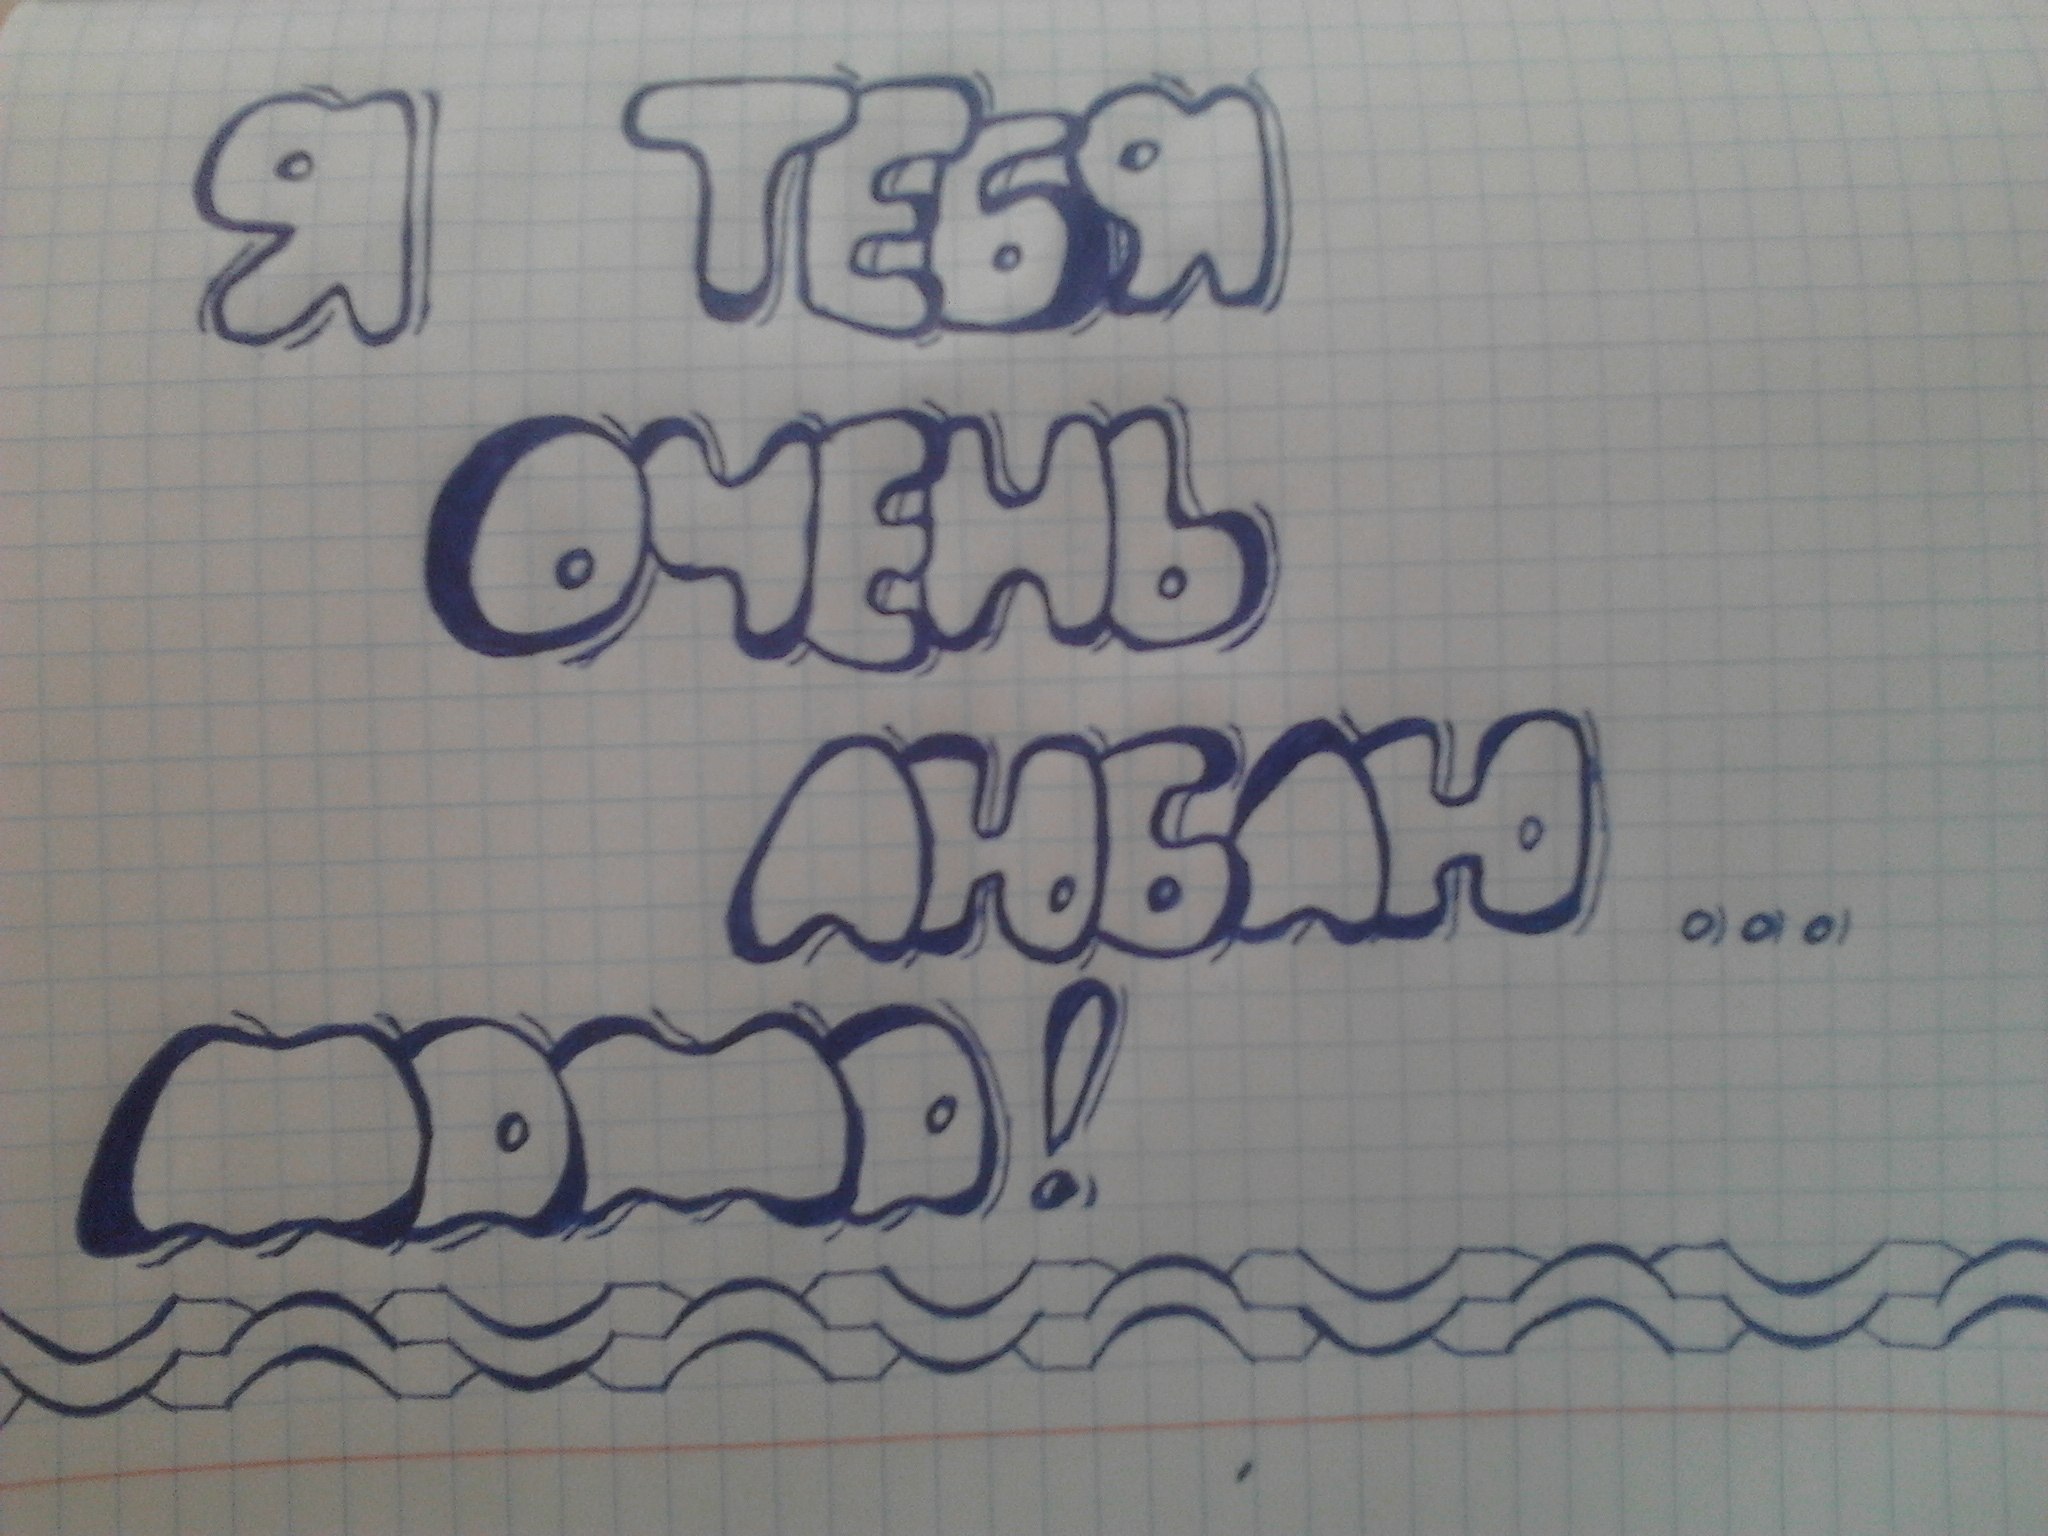 Я ТЕБЯ
ОЧЕНЬ
ЛЮБЛЮ...
МАМА!